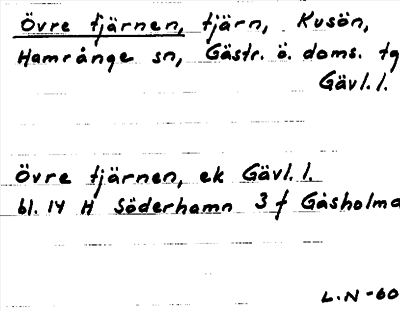 Övre tjärnen, tjärn, Kusön,
Hamrånge sn, Gästr. ö. doms. tg
Gävl. l.
Övre tjärnen, ek Gävl. l.
bl. 14 H Söderhamn 3 f Gåsholma
L. N -60